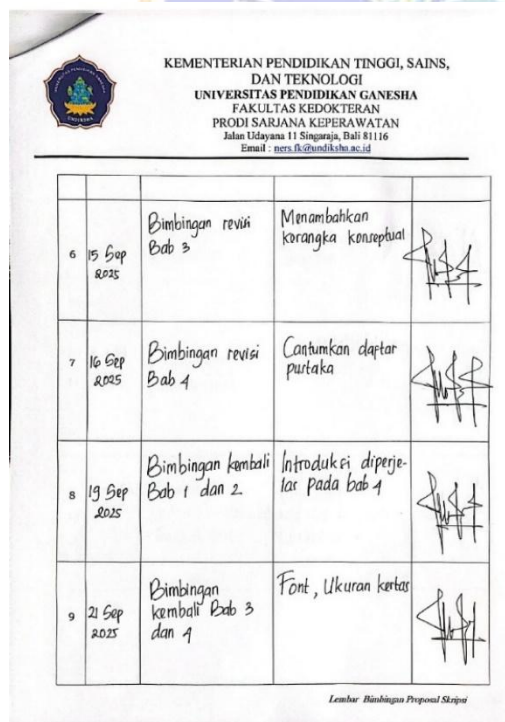 KEMENTERIAN PENDIDIKAN TINGGI, SAINS,
DAN TEKNOLOGI
UNIVERSITAS PENDIDIKAN GANESHA
FAKULTAS KEDOKTERAN
PRODI SARJANA KEPERAWATAN
Jalan Udayana 11 Singaraja, Bali 81116
Email : ners.fk@undiksha.ac.id
6
15 Sep
2025
Bimbingan revisi
Bab 3
Menambahkan
kerangka konseptual
7
16 Sep
2025
Bimbingan revisi
Bab 4
Cantumkan daptar
pustaka
8
19 Sep
2025
Bimbingan kembali
Bab 1 dan 2
Introduksi diperje-
las pada bab 4
9
21 Sep
2025
Bimbingan
kembali Bab 3
dan 4
Font, Ukuran kertas
Lembar Bimbingan Proposal Skripsi